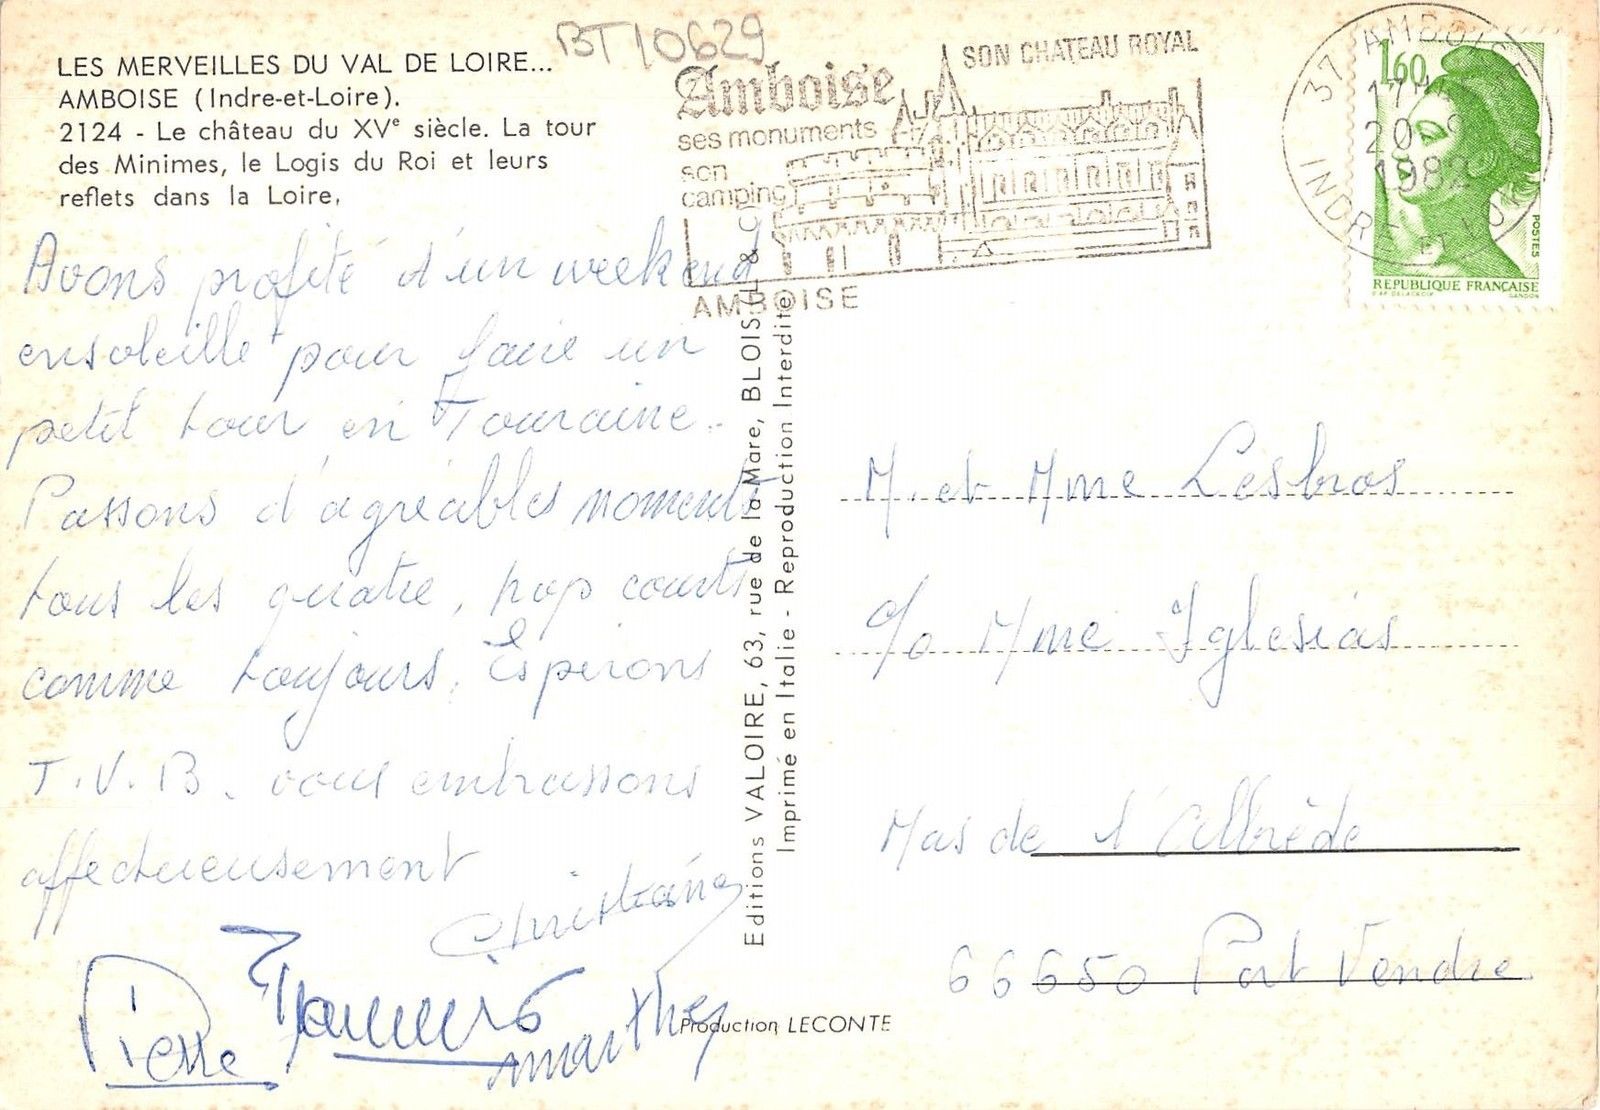 BT10629
LES MERVEILLES DU VAL DE LOIRE...
AMBOISE (Indre-et-Loire).
2124 - Le château du XVe siècle. La tour
des Minimes, le Logis du Roi et leurs
reflets dans la Loire.
Amboise
ses monuments
son
camping
SON CHATEAU ROYAL
AMBOISE
37 AMBOISE
20
1982
INDRE ET LO
1,60
POSTES
REPUBLIQUE FRANÇAISE
D'AP. DELACROIX
GANDON
Avons profité d'un weekend
ensoleillé pour faire un
petit tour en Touraine.
Passons d'agréables moments
tous les quatre, trop courts
comme toujours. Espérons
T.V.B. vous embrassons
affectueusement
Christiane
Pierre
Marthe
Editions VALOIRE, 63, rue de la Mare, BLOIS (L & C)
Imprimé en Italie - Reproduction Interdite
Production LECONTE
M. et Mme Lesbros
c/o Mme Iglesias
Mas de l'Albrède
66650 Port Vendre